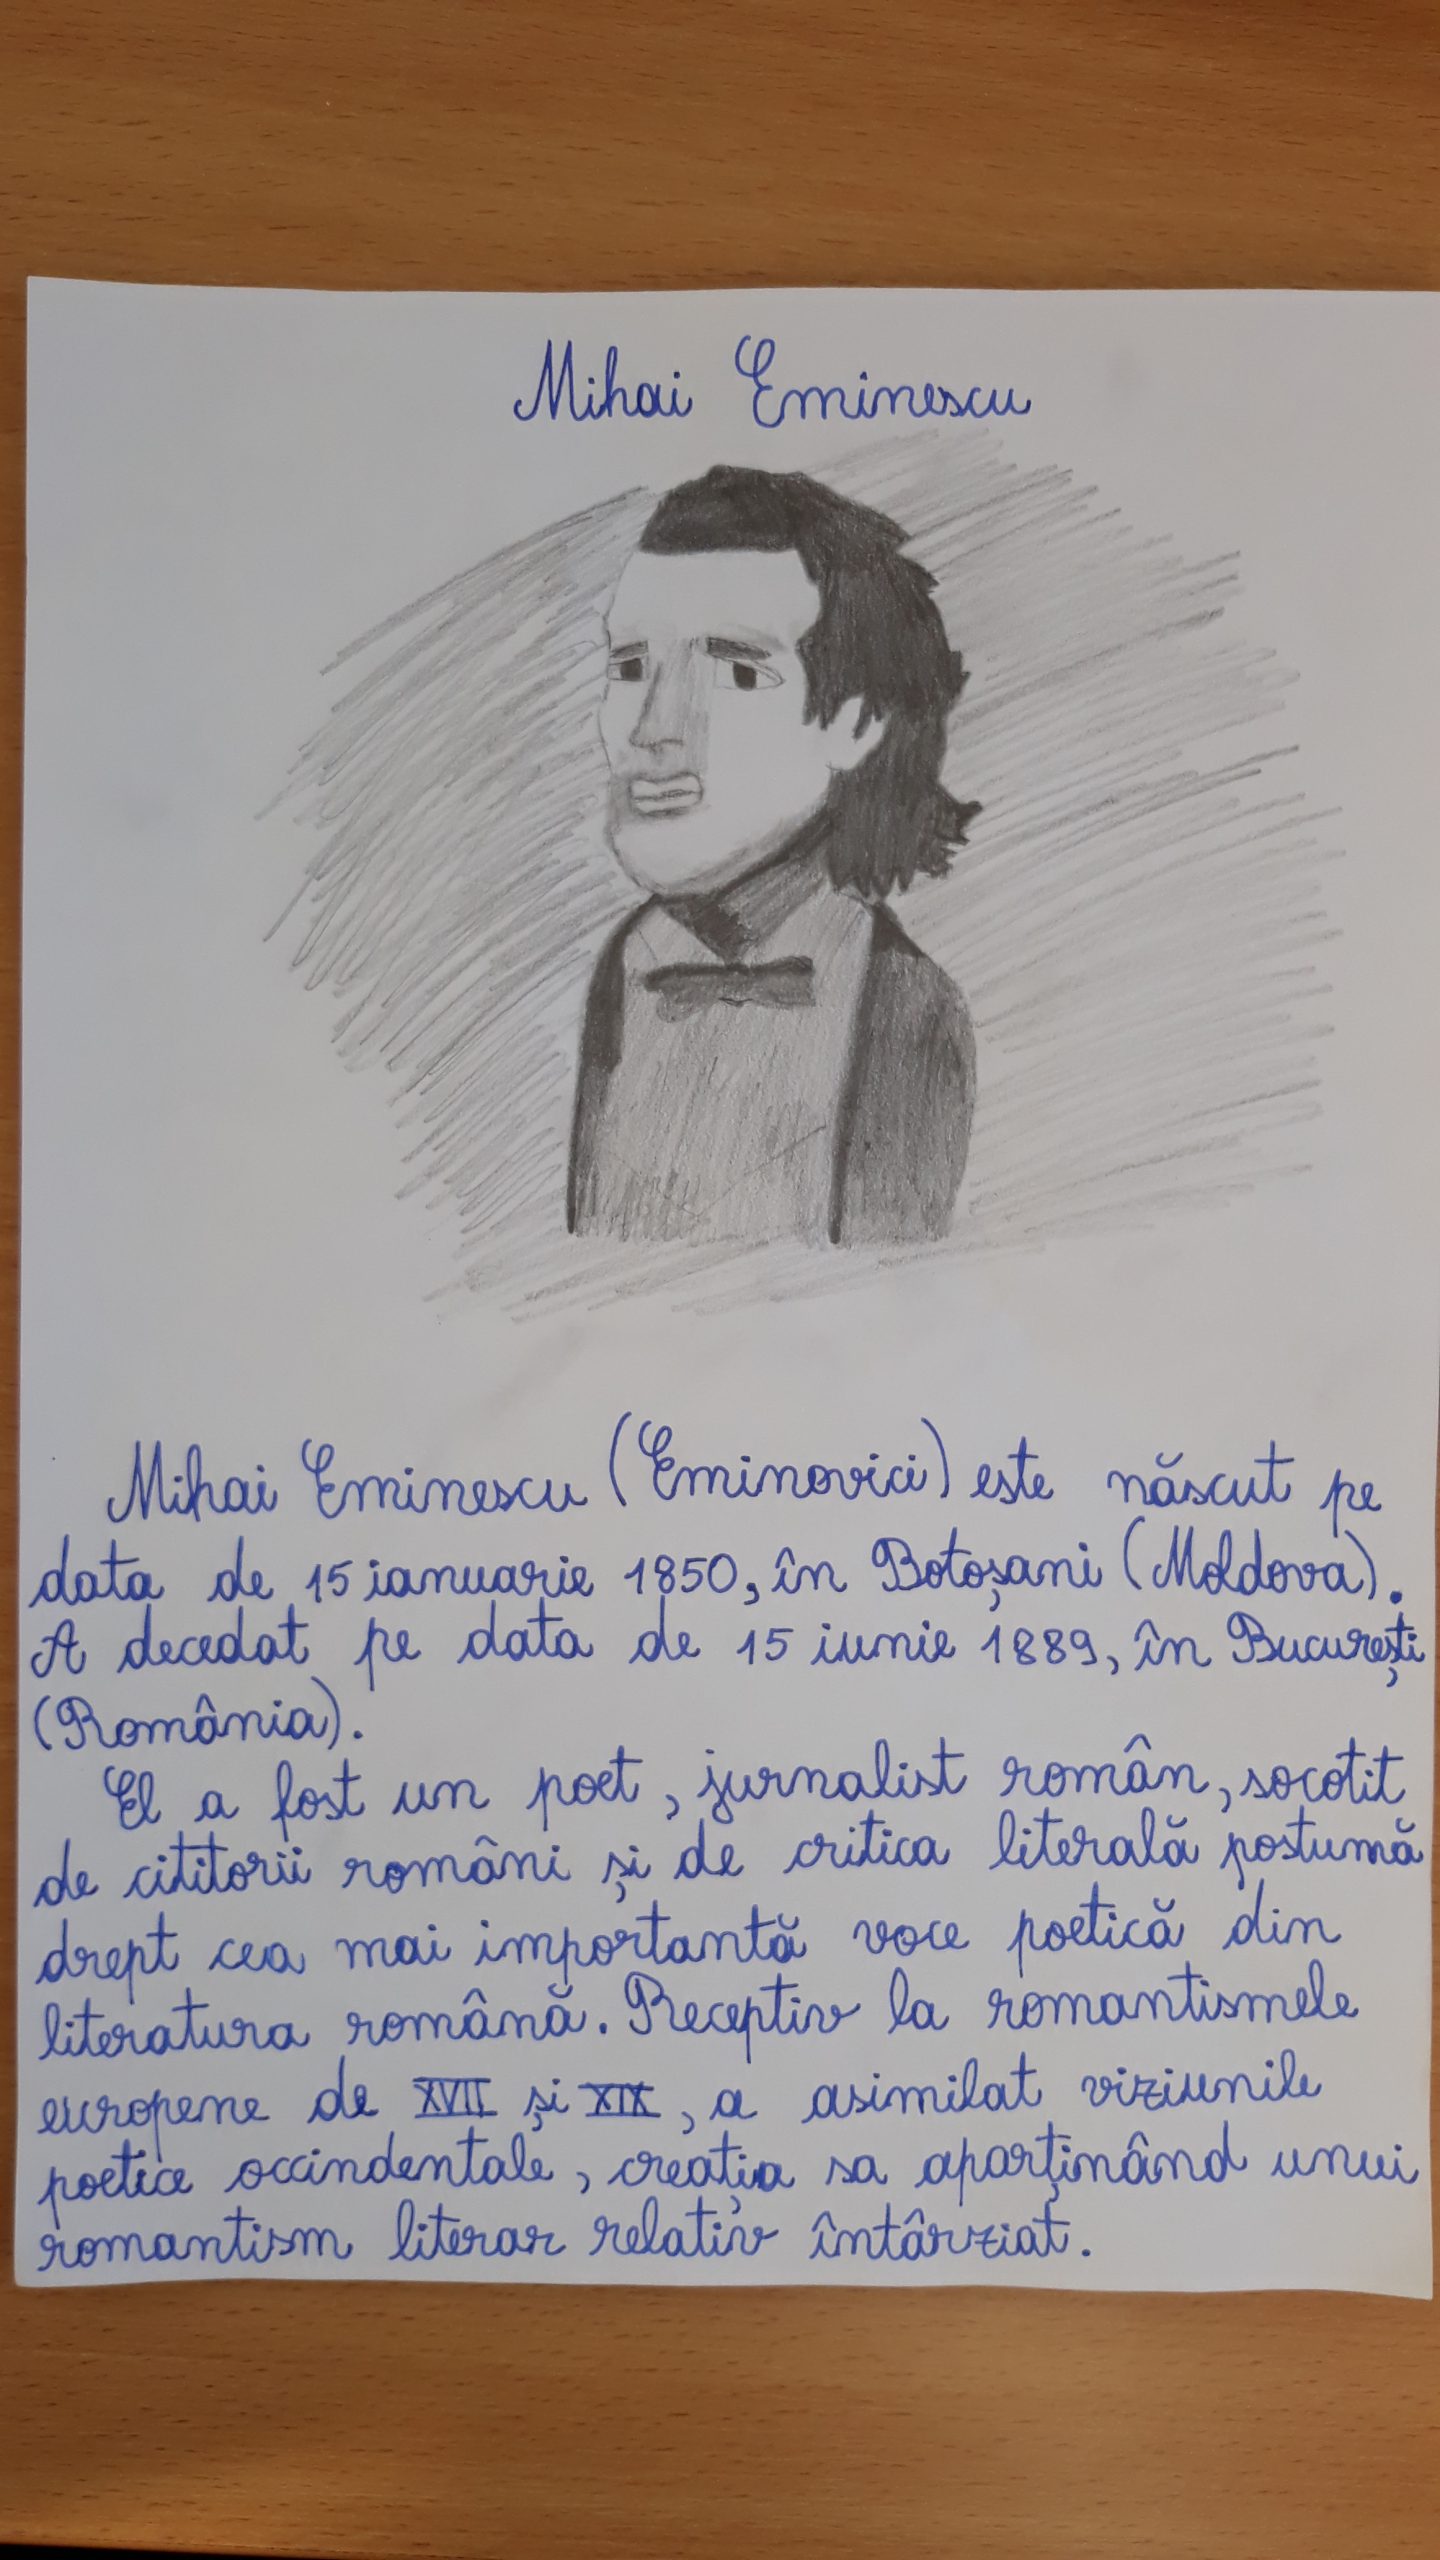 Mihai Eminescu
Mihai Eminescu (Eminovici) este născut pe
data de 15 ianuarie 1850, în Botoșani (Moldova).
A decedat pe data de 15 iunie 1889, în București
(România).
El a fost un poet, jurnalist român, socotit
de cititorii români și de critica literală postumă
drept cea mai importantă voce poetică din
literatura română. Receptiv la romantismele
europene de XVII și XIX, a asimilat viziunile
poetice occindentale, creația sa aparținând unui
romantism literar relativ întârziat.